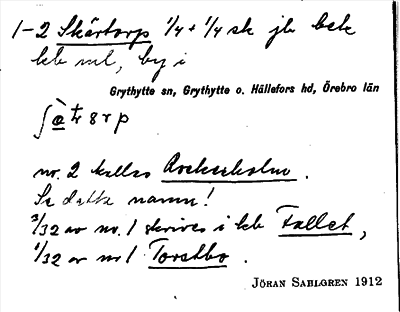 1-2 Skårtorp 1/4 + 1/4 sk jb bok
kb ml, by i
Grythytte sn, Grythytte o. Hällefors hd, Örebro län
nr. 2 kallas
Se detta namn!
3/32 av nr. 1 skrives i kb Fallet,
1/32 av nr 1 Torstbo.
JÖRAN SAHLGREN 1912